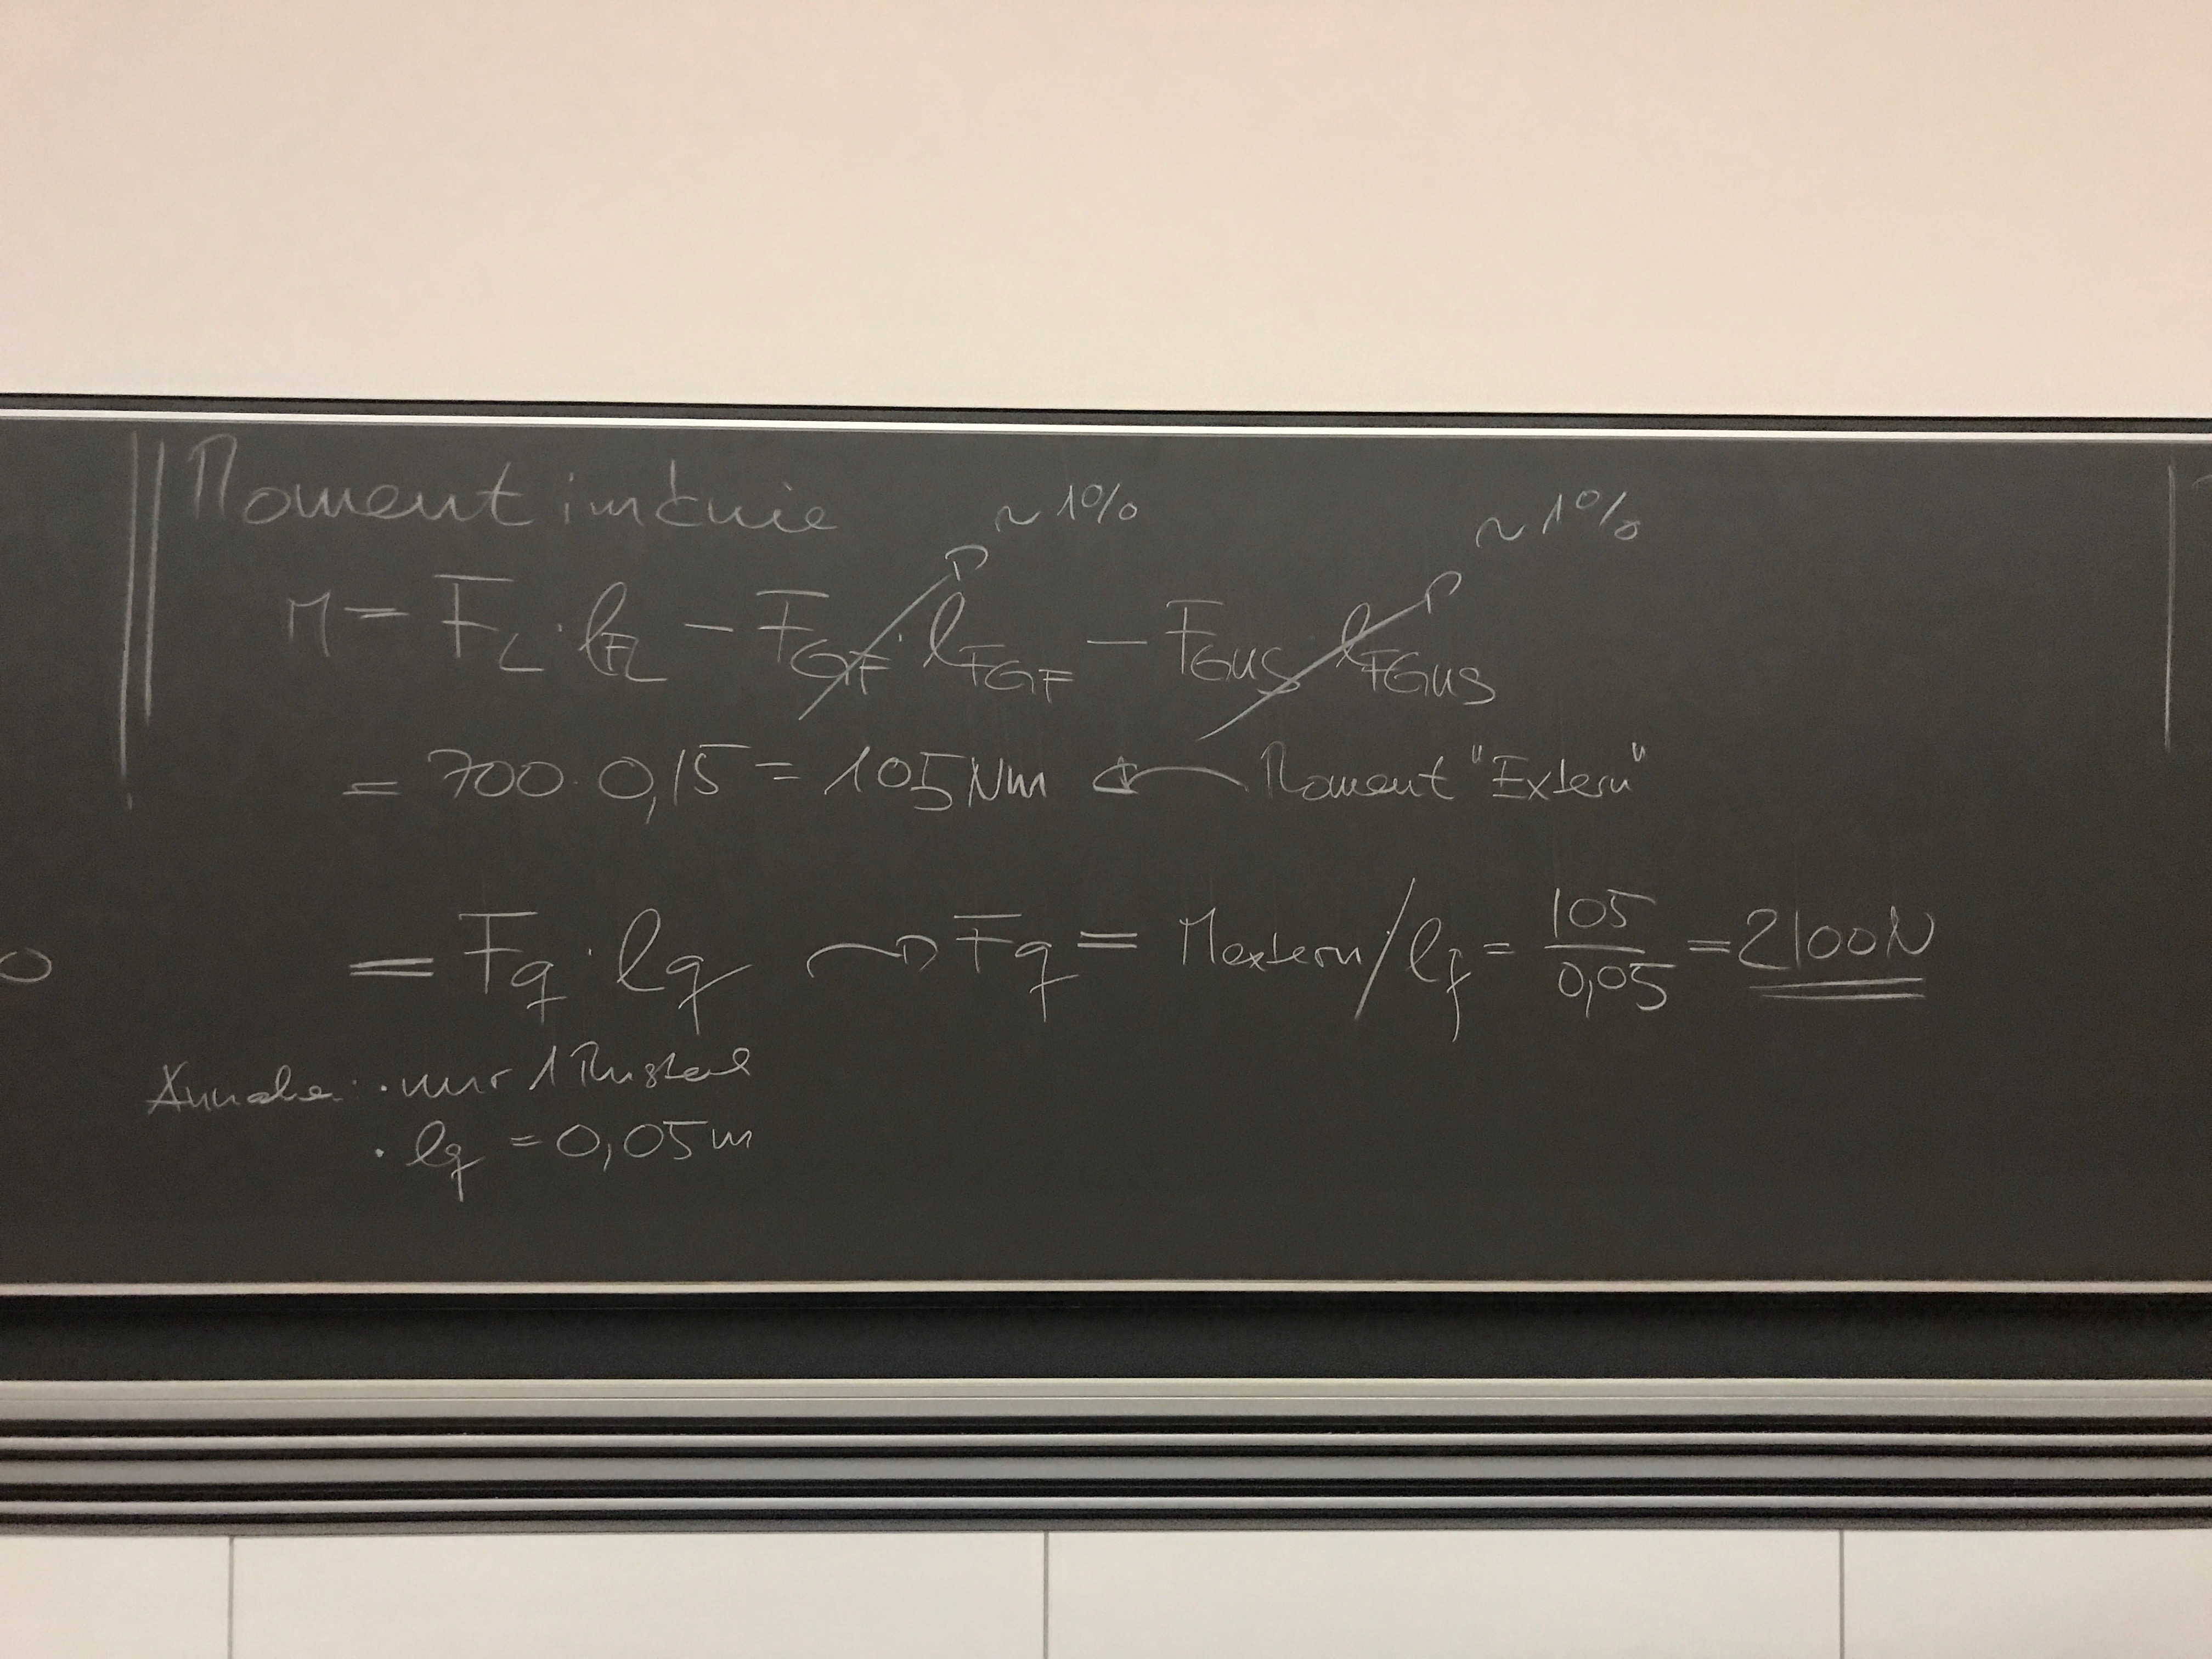 Moment im Knie
~ 1% ~ 1%
M = F_L · l_FL − F_GF · l_FGF − F_GUS · l_FGUS
= 700 · 0,15 = 105 Nm ← Moment "Extern"
= Fq · lq → Fq = Mextern / lq = 105/0,05 = 2100 N
Annahme: · nur 1 Muskel
· lq = 0,05 m